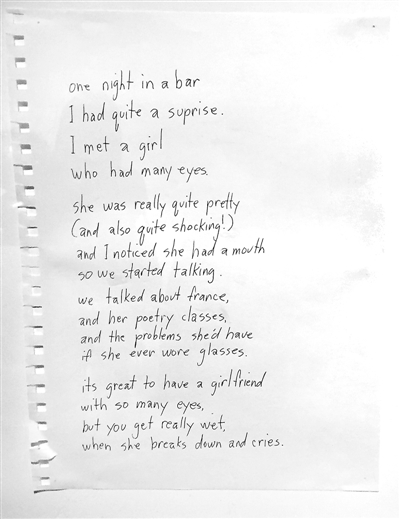 one night in a bar
I had quite a suprise.
I met a girl
who had many eyes.
she was really quite pretty
(and also quite shocking!)
and I noticed she had a mouth
so we started talking.
we talked about france,
and her poetry classes,
and the problems she'd have
if she ever wore glasses.
its great to have a girlfriend
with so many eyes,
but you get really wet,
when she breaks down and cries.